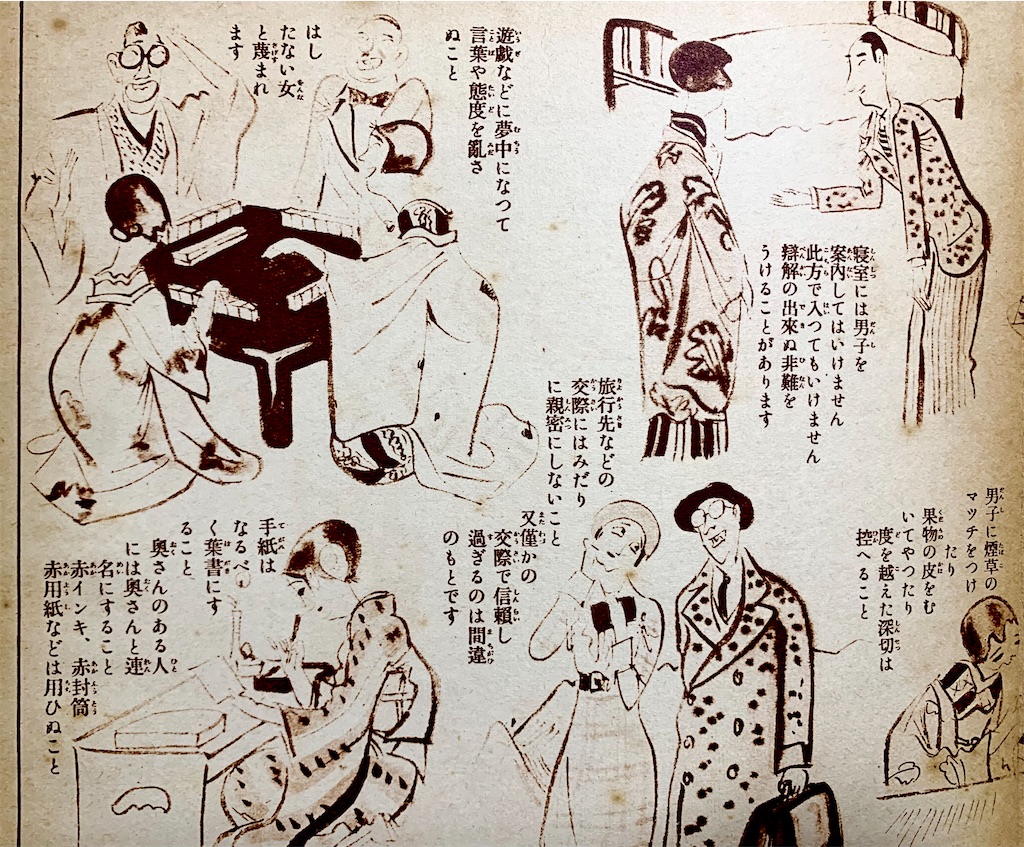 寝室には男子を
案内してはいけません
此方で入つてもいけません
辯解の出來ぬ非難を
うけることがあります
遊戯などに夢中になつて
言葉や態度を亂さ
ぬこと
はし
たない女
と蔑まれ
ます
男子に煙草の
マッチをつけ
たり
果物の皮をむ
いてやつたり
度を越えた深切は
控へること
旅行先などの
交際にはみだり
に親密にしないこと
又僅かの
交際で信頼し
過ぎるのは間違
のもとです
手紙は
なるべ
く葉書にす
ること
奥さんのある人
には奥さんと連
名にすること
赤インキ、赤封筒
赤用紙などは用ひぬこと